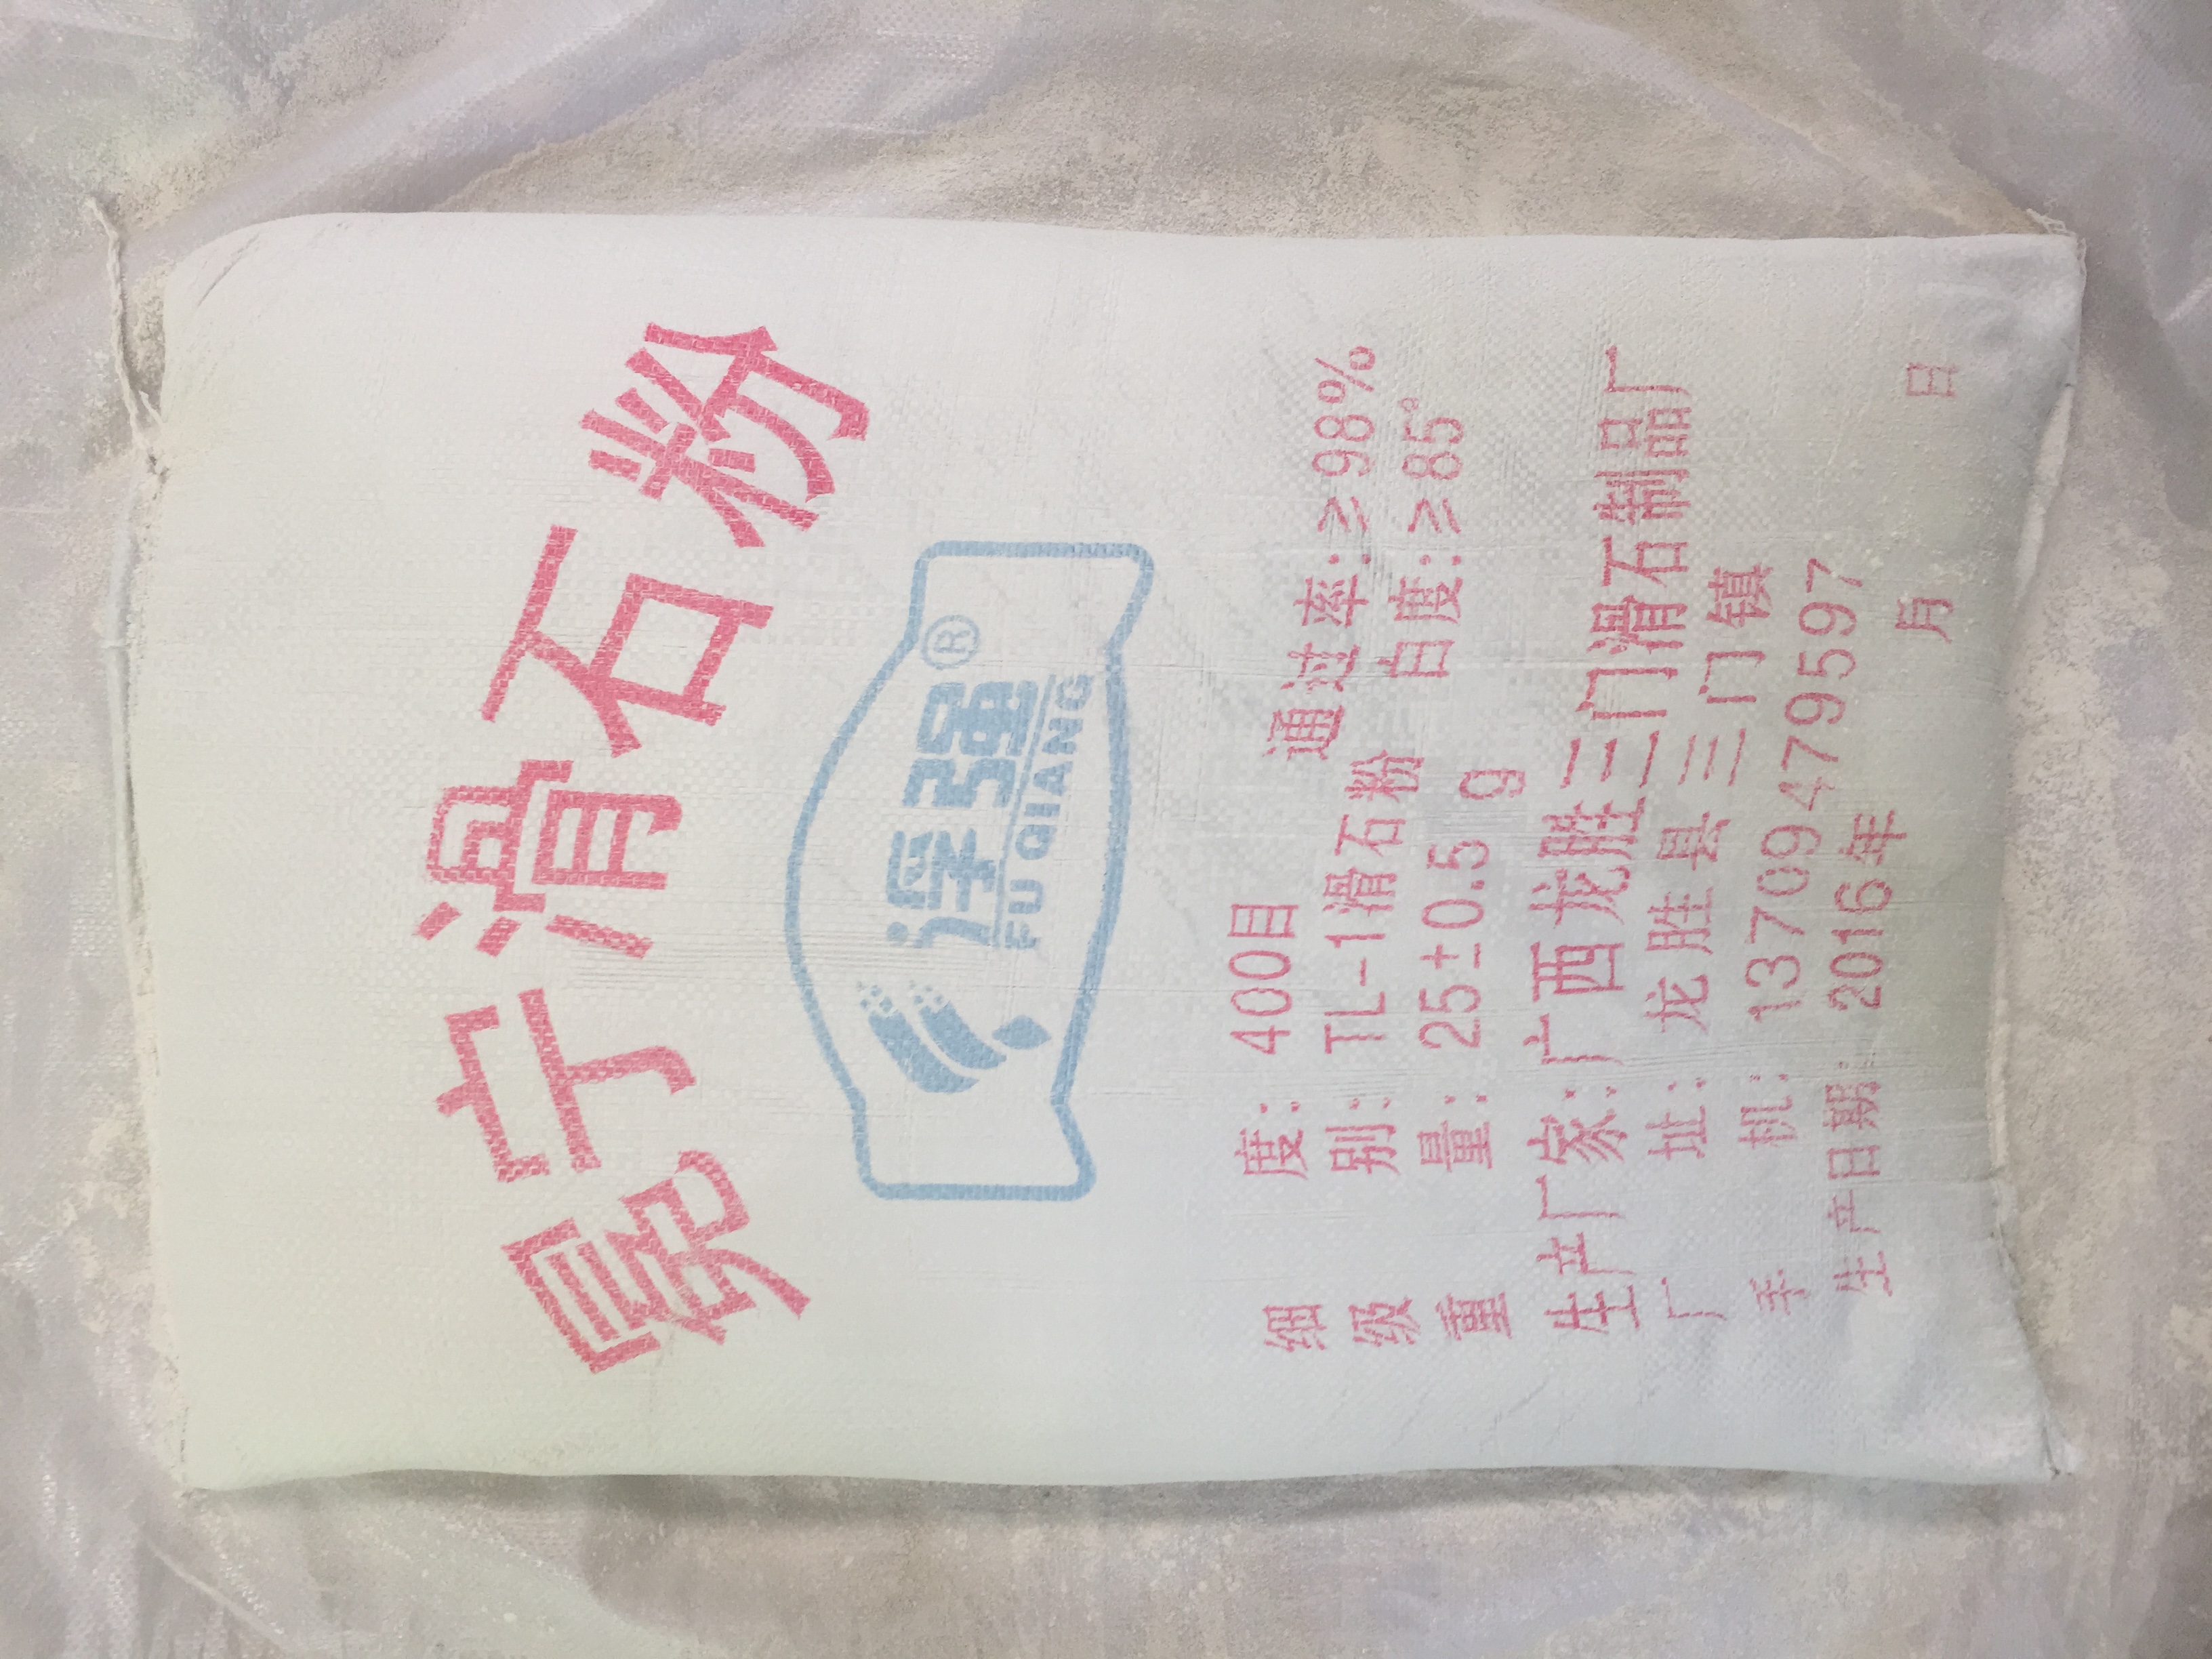 冕宁滑石粉
浮强®
FU QIANG
细 度：400目 通过率：≥98%
级 别：TL-1滑石粉 白度：≥85°
重 量：25±0.5 g
生产厂家：广西龙胜三门滑石制品厂
厂 址：龙胜县三门镇
手 机：13709479597
生产日期：2016年 月 日